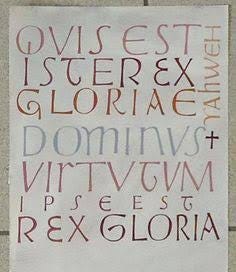 QVIS EST
ISTE REX
GLORIAE
DOMINVS+
VIRTVTVM
IPSE EST
REX GLORIA
YAHWEH